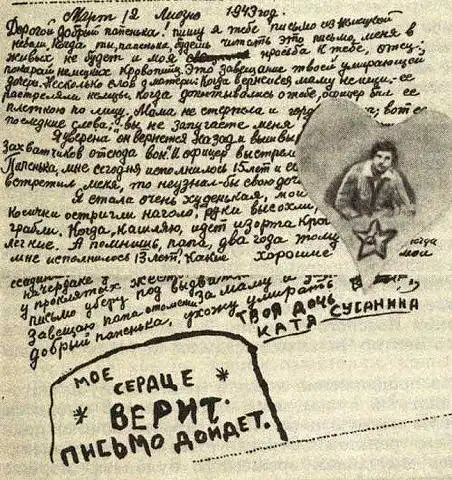 Март 12 Лиозно 1943 год.
Дорогой добрый папенька! пишу я тебе письмо из немецкой
неволи. Когда ты, папенька, будешь читать это письмо, меня в
живых не будет и моя просьба к тебе, отец:
покарай немецких кровопийц. Это завещание твоей умирающей
дочери. Несколько слов о матери. Когда вернешься маму не ищи-её
расстреляли немцы. Когда допытывались о тебе, офицер бил её
плеткою по лицу. Мама не стерпела и вот её
последние слова: "вы не запугаете меня
Я уверена он вернется назад и вышвыр
захватчиков отсюда вон". И офицер выстрел
Папенька, мне сегодня исполнилось 15 лет и ес
встретил меня, то не узнал-бы свою доч
Я стала очень худенькая, мои
косички остригли наголо, руки высохли,
грабли. Когда, кашляю, идёт изорта кро
легкие. А помнишь, папа, два года тому когда
мне исполнилось 13 лет. Какие хорошие мои
у проклятых
письмо дверц под
Завещаю папа отомсти: за маму и
добрый папенька, ухожу умирать
ТВОЯ ДОЧЬ
КАТЯ СУСАНИНА
МОЕ
СЕРДЦЕ
ВЕРИТ.
ПИСЬМО ДОЙДЕТ.